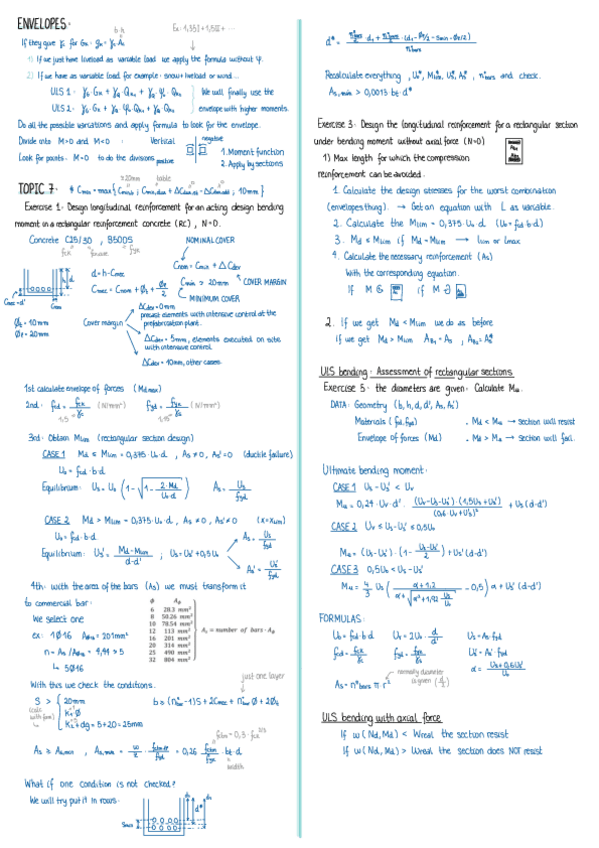 ENVELOPES:
If they give γ for Gk: gk = γ·Ac
b·h
Ex: 1,35I + 1,5II + ...
1) If we just have liveload as variable load we apply the formula without Ψ.
2) If we have as variable load for example: snow + liveload or wind...
We will finally use the
envelope with higher moments.
Do all the possible variations and apply formula to look for the envelope.
Divide into M>0 and M<0 : Vertical
negative
Look for points M=0 to do the divisions
positive
1. Moment function
2. Apply by sections
TOPIC 7:
≥20mm
table
Exercise 1: Design longitudinal reinforcement for an acting design bending
moment in a rectangular reinforcement concrete (RC), N=0.
Concrete C25/30 , B500S
fck
fyk
NOMINAL COVER
Cnom = Cmin + ΔCdev
d = h - Cmec
Cmec = Cnom + Øs + Øℓ/2
Cmin ≥ 20mm
COVER MARGIN
MINIMUM COVER
Cmec = d'
Cnom
Øs = 10mm
Øℓ = 20mm
Cover margin
ΔCdev = 0mm
precast elements with intensive control at the
prefabrication plant.
ΔCdev = 5mm, elements executed on site
with intensive control.
ΔCdev = 10mm, other cases.
1st calculate envelope of forces (Mdmax)
2nd: fcd = fck/γc (N/mm²) fyd = fyk/γs (N/mm²)
1,5
1,15
3rd: Obtain Mlim (rectangular section design)
CASE 1 Md ≤ Mlim = 0,375·U₀·d , As ≠ 0 , As' = 0 (ductile failure)
U₀ = fcd·b·d
Equilibrium: Us = U₀ (1 - √(1 - 2·Md/(U₀·d))) As = Us/fyd
CASE 2 Md > Mlim = 0,375·U₀·d , As ≠ 0 , As' ≠ 0 (x = xlim)
U₀ = fcd·b·d
Equilibrium: Us' = (Md - Mlim)/(d - d') ; Us = Us' + 0,5U₀
As = Us/fyd
As' = Us'/fyd
4th: with the area of the bars (As) we must transform it
to commercial bar:
We select one
ex: 1Ø16 AØ16 = 201mm²
n = As / AØ16 = 4,44 → 5
↳ 5Ø16
Ø AØ
6 28.3 mm²
8 50.26 mm²
10 78.54 mm²
12 113 mm²
16 201 mm²
20 314 mm²
25 490 mm²
32 804 mm²
As = number of bars · AØ
With this we check the conditions.
just one layer
S >
20mm
(calc with form)
+ dg = 5 + 20 = 25mm
width
What if one condition is not checked?
We will try put it in rows:
Recalculate everything , U₀*, Mlim*, Us*, As* , n*bars and check.
Exercise 3: Design the longitudinal reinforcement for a rectangular section
under bending moment without axial force (N=0)
1) Max length for which the compression
reinforcement can be avoided:
1. Calculate the design stresses for the worst combination
(envelopes thing). → Get an equation with L as variable.
2. Calculate the Mlim = 0,375·U₀·d (U₀ = fcd·b·d)
3. Md ≤ Mlim if Md = Mlim → Lcm or Lmax
4. Calculate the necessary reinforcement (As)
with the corresponding equation.
If M ⊕ if M ⊖
2. If we get Md < Mlim we do as before
If we get Md > Mlim
ULS bending: Assessment of rectangular sections
Exercise 5: the diameters are given. Calculate Mu.
DATA: Geometry (b, h, d, d', As, As')
Materials (fcd, fyd)
Envelope of forces (Md)
. Md < Mu → section will resist
. Md > Mu → section will fail.
Ultimate bending moment:
CASE 1 Us - Us' < Uv
CASE 2 Uv ≤ Us - Us' ≤ 0,5U₀
Mu = (Us - Us')·(1 - (Us - Us')/2) + Us'(d - d')
CASE 3 0,5U₀ < Us - Us'
FORMULAS:
U₀ = fcd·b·d Uv = 2U₀·d'/d Us = As·fyd
fcd = fck/γc fyd = fyk/γs Us' = As'·fyd
As = n°bars·π·r²
normally diameter
is given
ULS bending with axial force
If w (Nd, Md) < Wreal the section resist
If w (Nd, Md) > Wreal the section does NOT resist